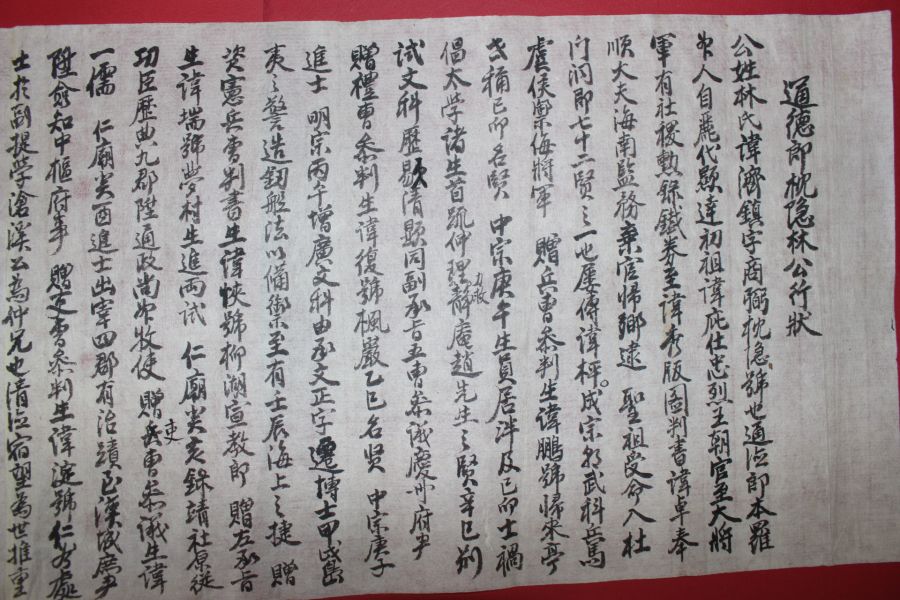 通德郎枕隐林公行狀
公姓林氏諱濟鎮字商弼枕隐號也通德郎本羅
州人自麗代顯達初祖諱庇仕忠烈王朝官至大將
軍有社稷勲錄鐵券至諱秀版圖判書諱卓奉
順大夫海南監務棄官歸鄉逮 聖祖受命入杜
门洞即七十二賢之一也屢傳諱枰成宗朝武科兵馬
虞侯禦海將軍 贈兵曹叅判生諱鵬號歸來亭
世稱己卯名賢 中宗庚午生員居泮及己卯士禍
倡太学諸生首疏仲理靜庵趙先生之賢辛巳別
力救
試文科歷敭清顯同副承旨五曹叅議慶州府尹
贈禮曹叅判生諱復號楓巖乙巳名賢 中宗庚子
進士 明宗丙午增廣文科由承文正字遷博士甲戌島
夷之警造釰船法以備禦至有壬辰海上之捷 贈
資憲兵曹判書生諱悏號柳湖宣教郎 贈左承旨
生諱㙐號夢村生進両试 仁廟癸亥錄靖社原從
功臣歷典九郡陞通政尚州牧使 贈兵曹叅議生諱
吏
一儒 仁廟癸酉進士出宰四郡有治蹟至漢城庶尹
陞僉知中樞府事 贈吏曹叅判生諱淀號仁州處
士於副提学滄溪公為仲兄也清德宿望為世推重